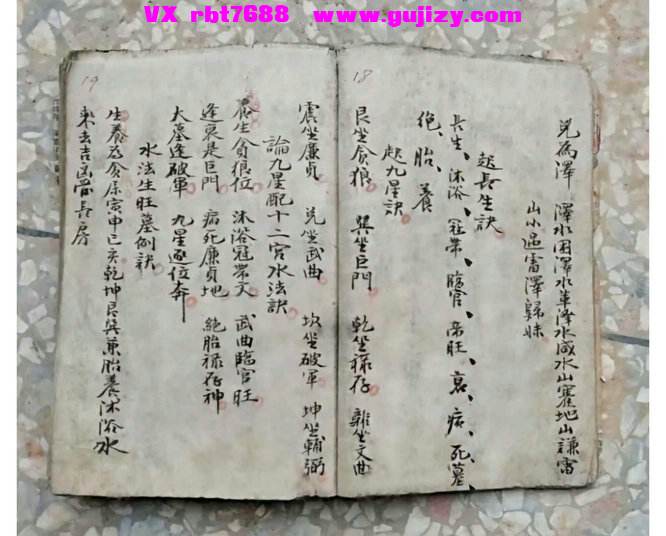 VX rbt7688 www.gujizy.com
18
兌為澤 澤水困澤水革泽水咸水山蹇地山謙雷
山小過雷澤歸妹
起長生訣
長生、沐浴、冠帯、臨官、帝旺、衰、病、死墓、
絶、胎、養
起九星訣
艮坐貪狼 巽坐巨門 乾坐禄存 離坐文曲
19
震坐廉貞 兌坐武曲 坎坐破軍 坤坐輔弼
論九星配十二宮水法訣
養生貪狼位 沐浴冠帯文 武曲臨官旺
逢衰是巨門 病死廉貞地 絶胎禄存神
大墓逢破軍 九星逐位奔
水法生旺墓例訣
生養為貪狼寅申巳亥乾坤艮巽兼胎養沐浴水
來去吉凶営長房